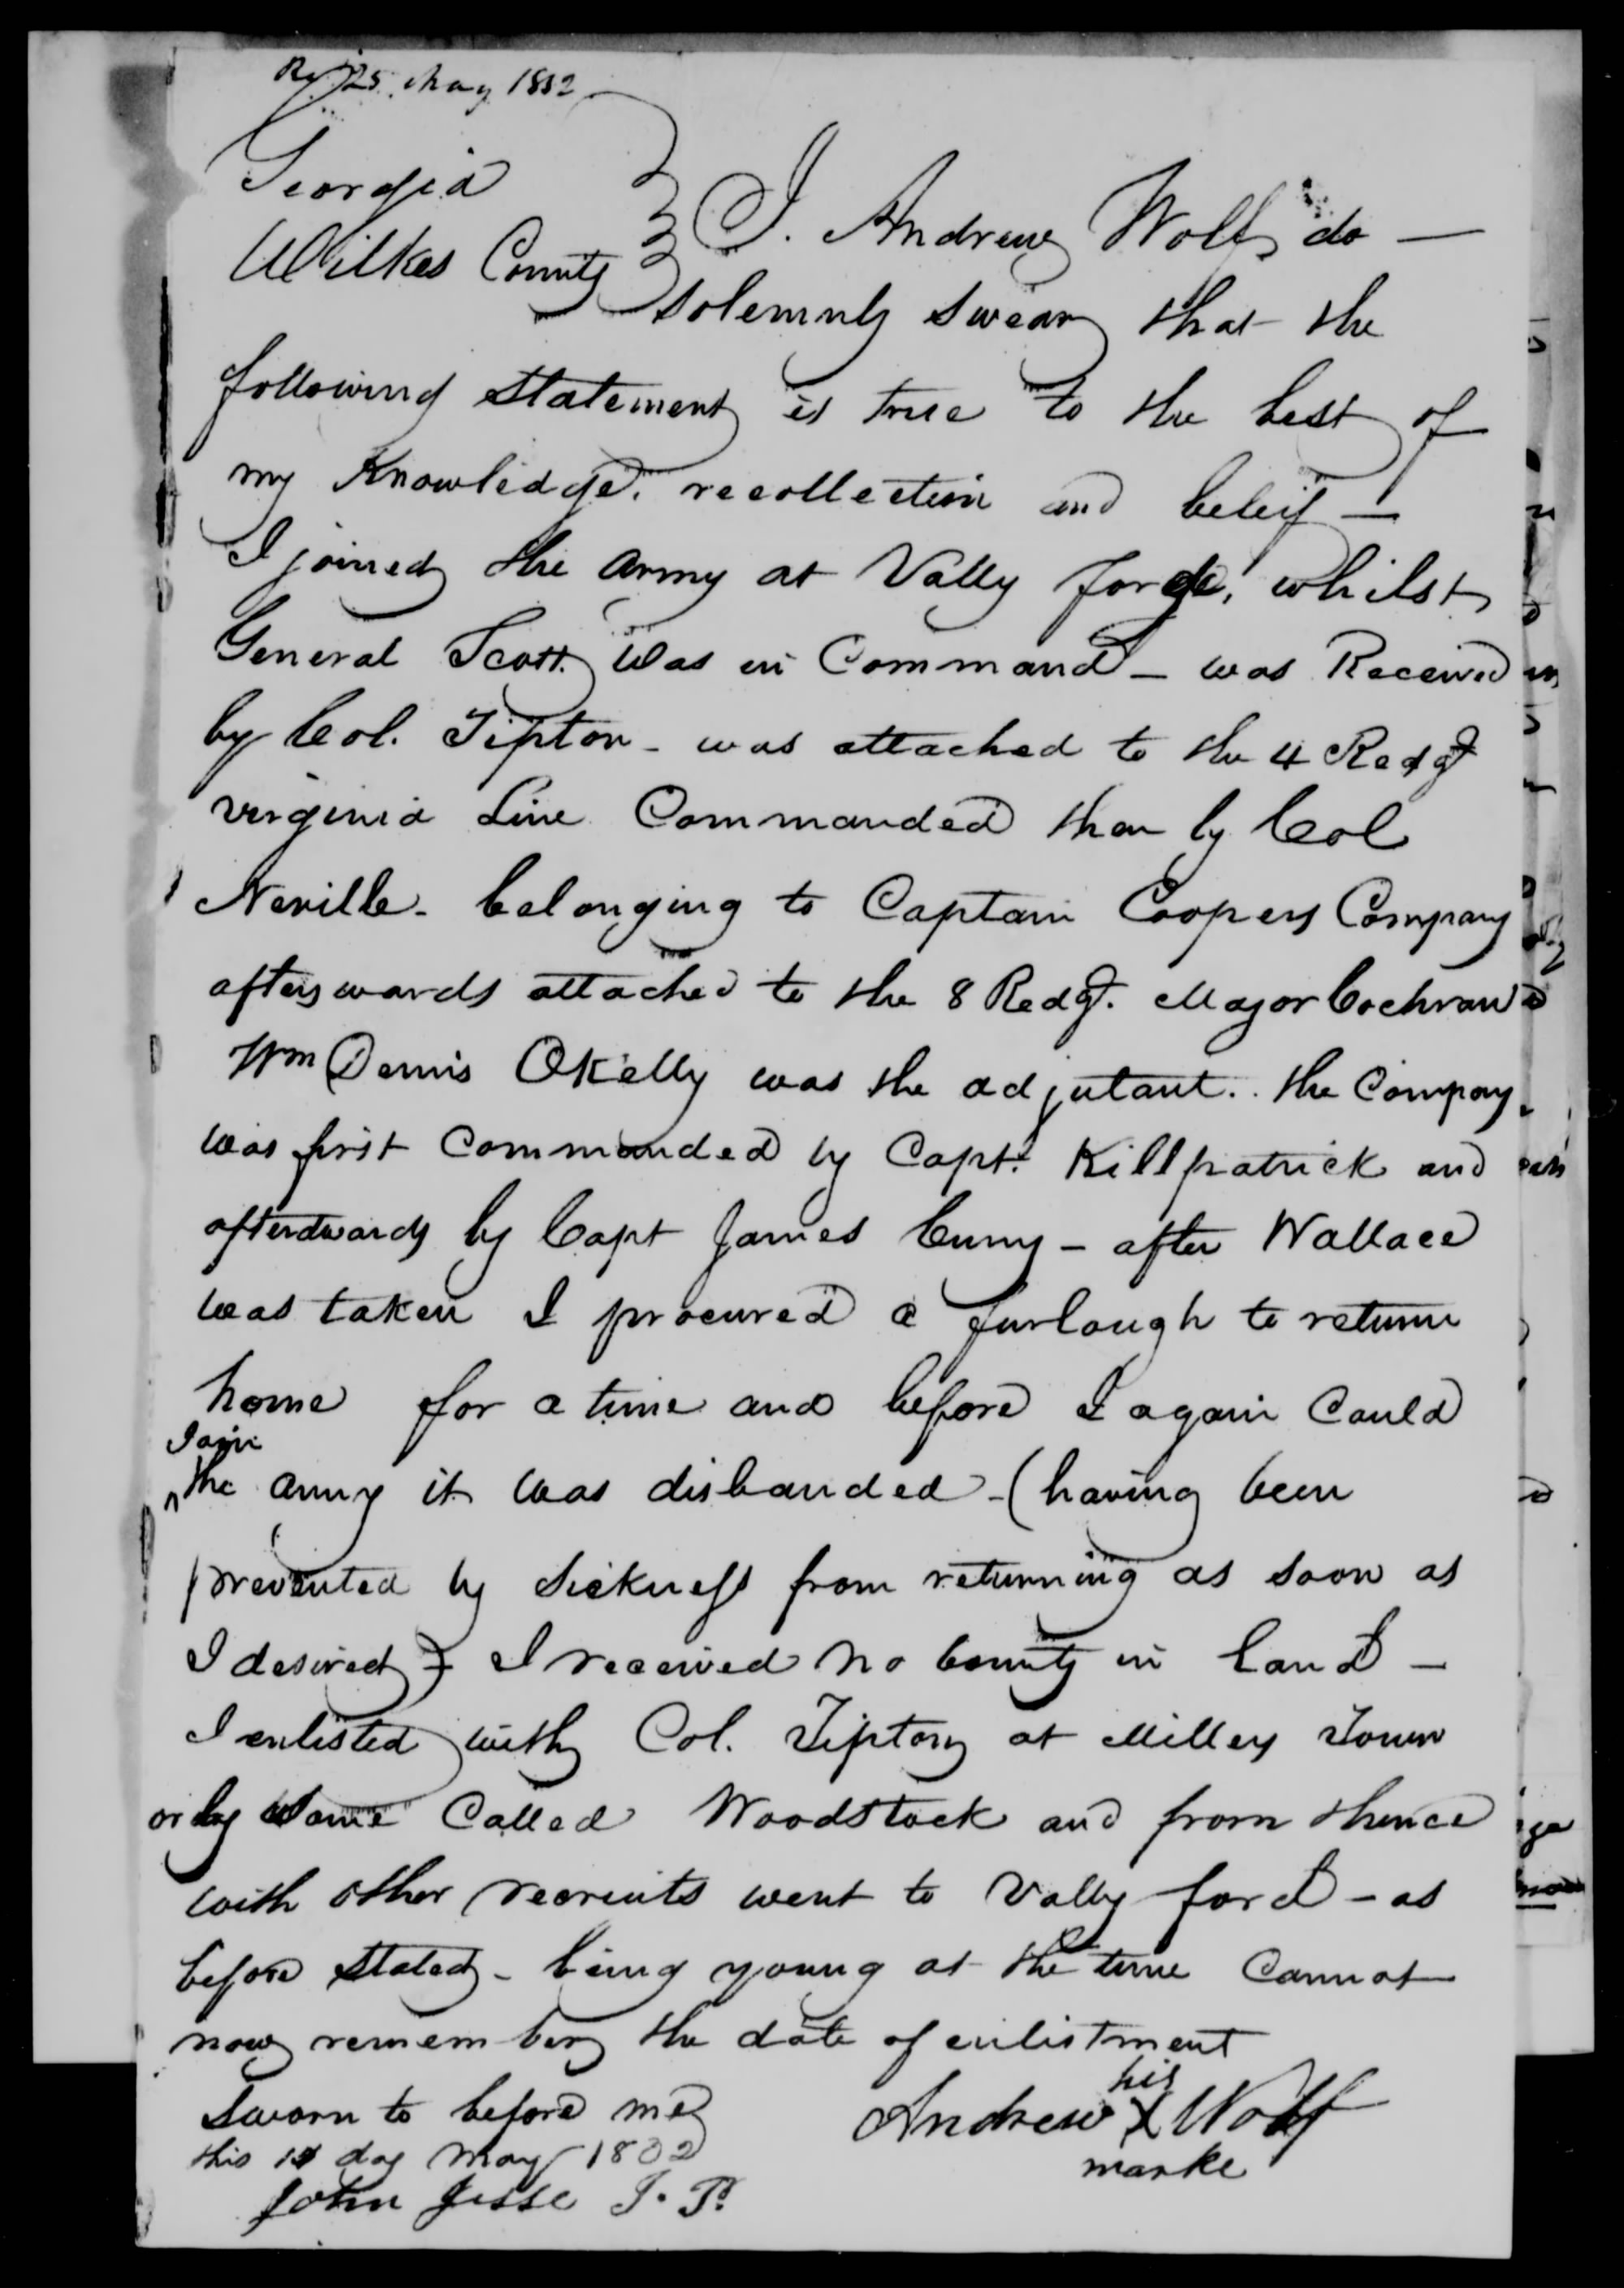 25 May 1832
Georgia
Wilkes County
I. Andrew Wolf do —
solemnly swear that the
following statement is true to the best of
my Knowledge. recollection and beleif —
I joined the army at Vally forge, whilst
General Scott was in Command — was Received
by Col. Tipton — was attached to the 4 Redgt
virginia Line Commanded than by Col
Neville — belonging to Captain Coopers Company
afterswards attached to the 8 Redgt. Major Cochran
Wm Dennis OKelly was the adjutant.. the Company
was first Commanded by Capt. Killpatrick and
afterdwards by Capt James Curry — after Wallace
was taken I procured a furlough to return
home for a time and before I again Could
Join
^ the army it was disbanded — (having been
prevented by sickness from returning as soon as
I desired) I received no bounty in Land —
I enlisted with Col. Tipton at Millers Town
or by some Called Woodstock and from thence
with other recruits went to Vally ford — as
before stated — being young at the time Cannot
now remember the date of enlistment
his
Andrew X Wolf
marke
Sworn to before me
this day May 1832
John Jesse J. P.